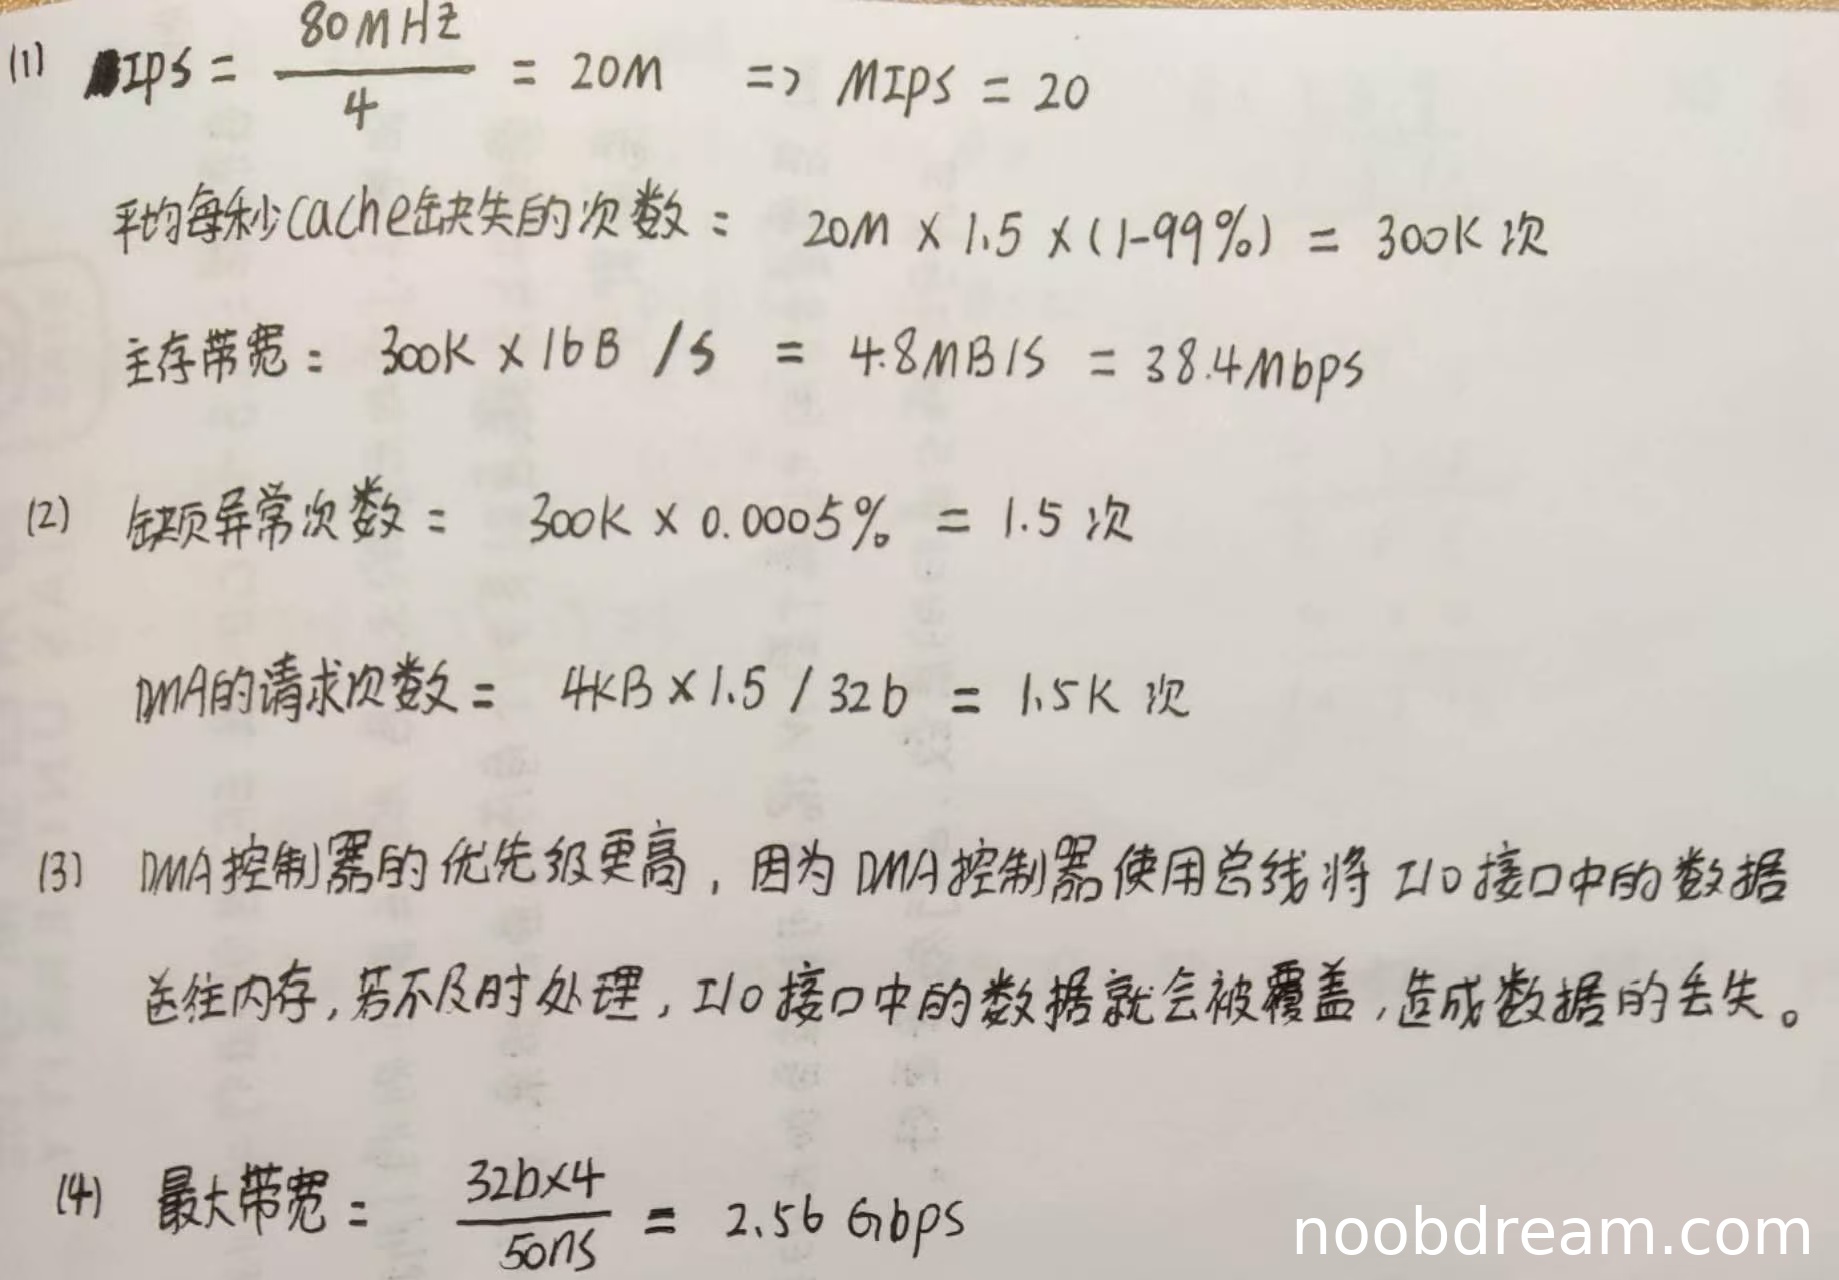 (1) IPS = 80MHZ / 4 = 20M => MIPS = 20
平均每秒cache缺失的次数: 20M × 1.5 × (1-99%) = 300K 次
主存带宽: 300K × 16B /s = 4.8MB/S = 38.4Mbps
(2) 缺页异常次数 = 300K × 0.0005% = 1.5 次
DMA的请求次数 = 4KB × 1.5 / 32b = 1.5K 次
(3) DMA控制器的优先级更高, 因为DMA控制器使用总线将 I/O 接口中的数据
送往内存, 若不及时处理, I/O 接口中的数据就会被覆盖, 造成数据的丢失。
(4) 最大带宽 = 32b×4 / 50ns = 2.56 Gbps
noobdream.com